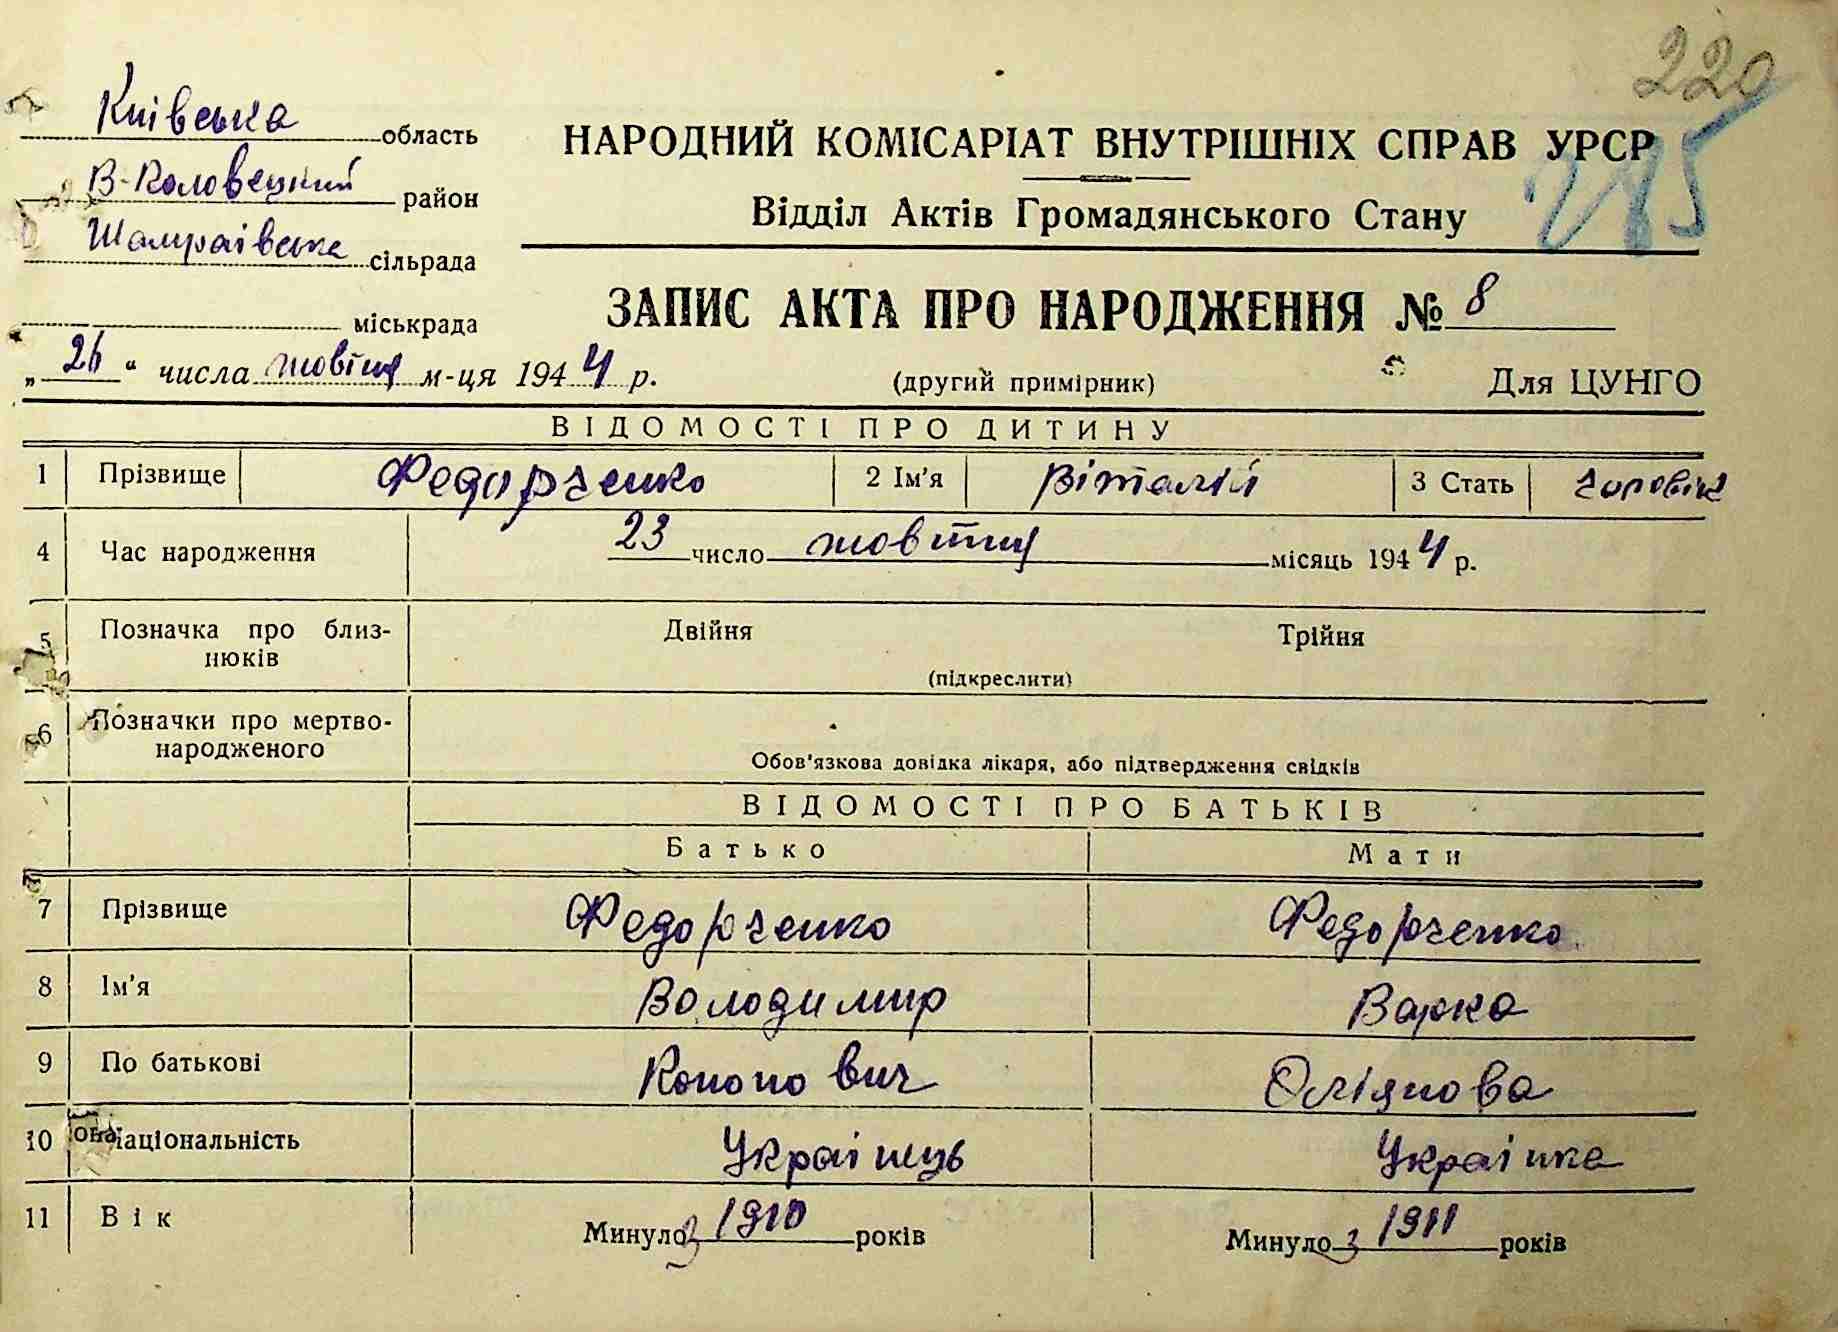 220
285
Київська область
В-Половецький район
Шамраївська сільрада
міськрада
„26“ числа жовтня м-ця 1944 р.
НАРОДНИЙ КОМІСАРІАТ ВНУТРІШНІХ СПРАВ УРСР
Відділ Актів Громадянського Стану
ЗАПИС АКТА ПРО НАРОДЖЕННЯ № 8
(другий примірник)
Для ЦУНГО
ВІДОМОСТІ ПРО ДИТИНУ
1 Прізвище Федорченко 2 Ім'я Віталій 3 Стать чоловіч
4 Час народження 23 число жовтня місяць 1944 р.
5 Позначка про близнюків Двійня Трійня
(підкреслити)
6 Позначки про мертвонародженого
Обов'язкова довідка лікаря, або підтвердження свідків
ВІДОМОСТІ ПРО БАТЬКІВ
Батько Мати
7 Прізвище Федорченко Федорченко
8 Ім'я Володимир Варка
9 По батькові Кононович
10 Національність Українець Українка
11 Вік Минуло з 1910 років Минуло з 1911 років